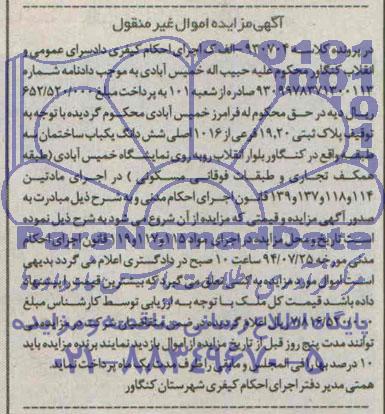 آگهی مزایده اموال غیر منقول
در پرونده کلاسه ۹۳۰۷۰۴-الف ک اجرای احکام کیفری دادسرای عمومی و
انقلاب کنگاور محکوم علیه حبیب اله خمیس آبادی به موجب دادنامه شماره
۹۳۰۹۹۷۸۳۷۱۳۰۰۱۱۳ صادره از شعبه ۱۰۱ به پرداخت مبلغ ۶۵۲/۵۲۰/۰۰۰
ریال دیه در حق محکوم له فرامرز خمیس آبادی محکوم گردیده با توجه به
توقیف پلاک ثبتی ۱۹،۲۰ فرعی از ۱۰۱۶ اصلی شش دانگ یکباب ساختمان سه
طبقه واقع در کنگاور بلوار انقلاب روبه روی نمایشگاه خمیس آبادی (طبقه
همکف تجاری و طبقات فوقانی مسکونی) در اجرای مادتین
۱۱۴و۱۱۸و۱۳۷و۱۳۹ قانون اجرای احکام مدنی و به شرح ذیل مبادرت به
صدور آگهی مزایده و قیمتی که مزایده از آن شروع می شود به شرح ذیل نموده
است تاریخ و محل مزایده در اجرای مواد ۱۱۵و۱۱۷و۱۱۹ قانون اجرای احکام
مدنی مورخه ۹۴/۰۷/۲۵ ساعت ۱۰ صبح در دادگستری اعلام می گردد بدیهی
است اموال مورد مزایده به کسی تعلق می گیرد که بیشترین قیمت را پیشنهاد
داده باشد قیمت کل ملک با توجه به ارزیابی توسط کارشناس مبلغ
ریال اعلام گردیده در ضمن متقاضیان شرکت در مزایده می
توانند مدت پنج روز قبل از تاریخ مزایده از اموال بازدید نمایند برنده مزایده باید
۱۰ درصد بها را فی المجلس و مابقی را ظرف مدت یک ماه پرداخت نماید
همتی مدیر دفتر اجرای احکام کیفری شهرستان کنگاور
پایگاه اطلاع رسانی مناقصه و مزایده
۰۲۱-۸۸۳۴۹۶۷۰-۵